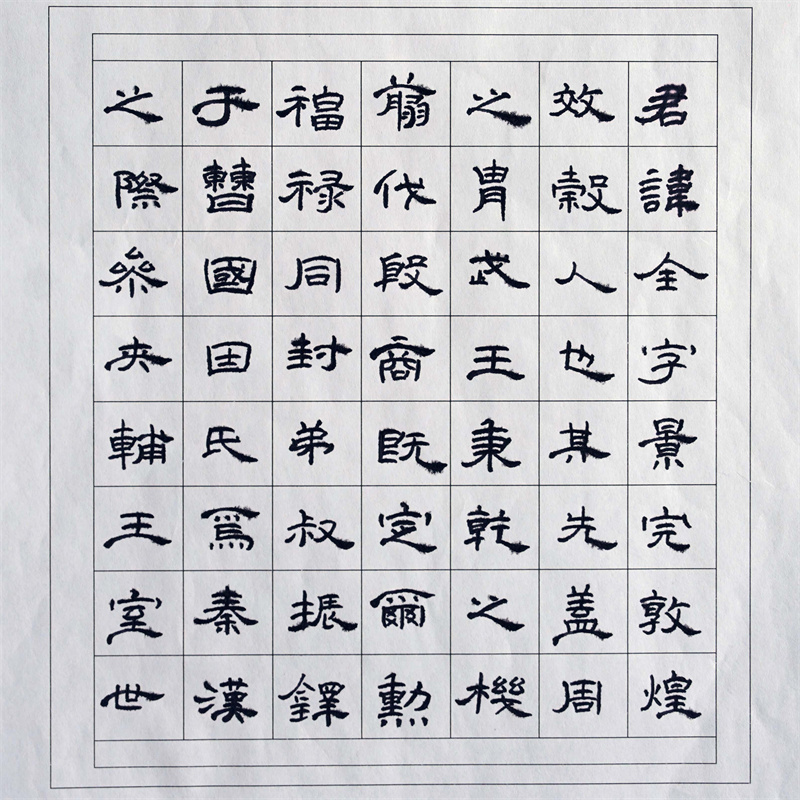 君諱全字景完敦煌
效穀人也其先蓋周
之胄武王秉乾之機
翦伐殷商既定爾勳
福祿同封弟叔振鐸
于曹國因氏焉秦漢
之際參夾輔王室世